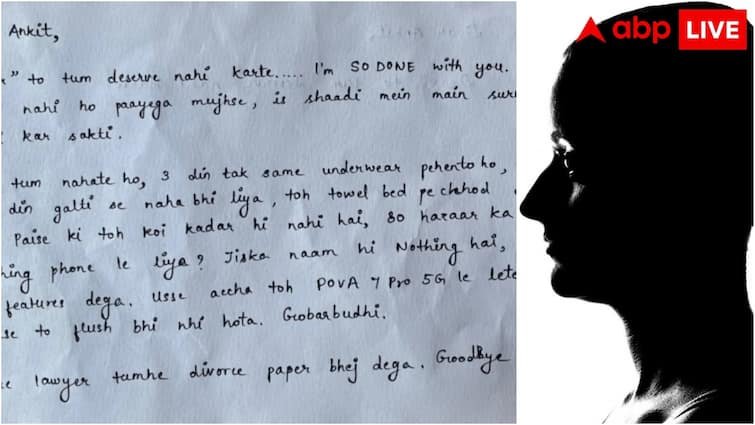 Ankit,
" to tum deserve nahi karte..... I'm SO DONE with you.
nahi ho paayega mujhse, is shaadi mein main sur
kar sakti.
tum nahate ho, 3 din tak same underwear pehento ho,
din galti se naha bhi liya, toh towel bed pe chhod
Paise ki toh koi kadar hi nahi hai, 80 hazaar ka
hing phone le liya? Jiska naam hi Nothing hai,
features dega. Usse accha toh POVA 7 Pro 5G le lete
se to flush bhi nhi hota. Gobarbudhi.
lawyer tumhe divorce paper bhej dega. Goodbye
abp LIVE